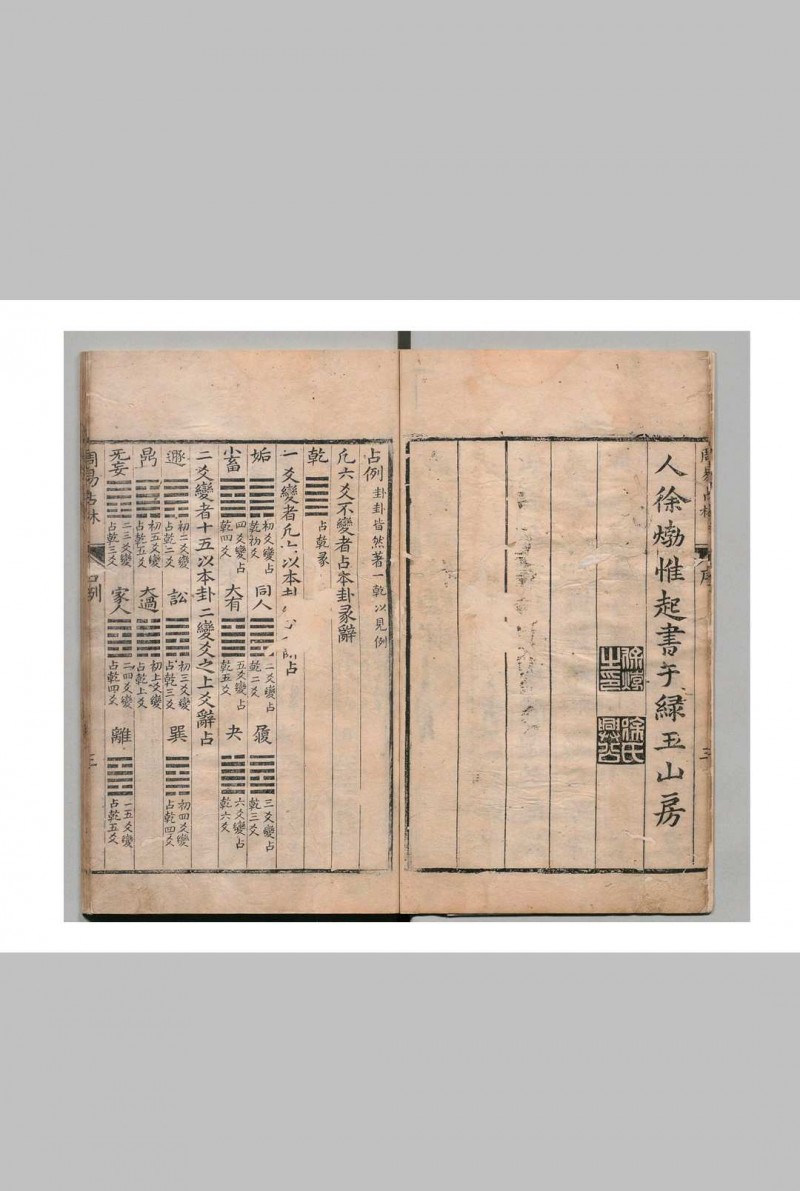 人徐𤊹惟起書于緑玉山房
徐𤊹之印
徐氏興公
占例 卦卦皆然著一乾以見例
凡六爻不變者占本卦彖辭
乾 占乾彖
一爻變者凡六以本卦
占
姤 初爻變占乾初爻 同人 二爻變占乾二爻 履 三爻變占乾三爻
小畜 四爻變占乾四爻 大有 五爻變占乾五爻 夬 六爻變占乾六爻
二爻變者十五以本卦二變爻之上爻辭占
遯 初二爻變占乾二爻 訟 初三爻變占乾三爻 巽 初四爻變占乾四爻
鼎 初五爻變占乾五爻 大過 初上爻變占乾上爻
无妄 二三爻變占乾三爻 家人 二四爻變占乾四爻 離 二五爻變占乾五爻
周易古林 占例 三